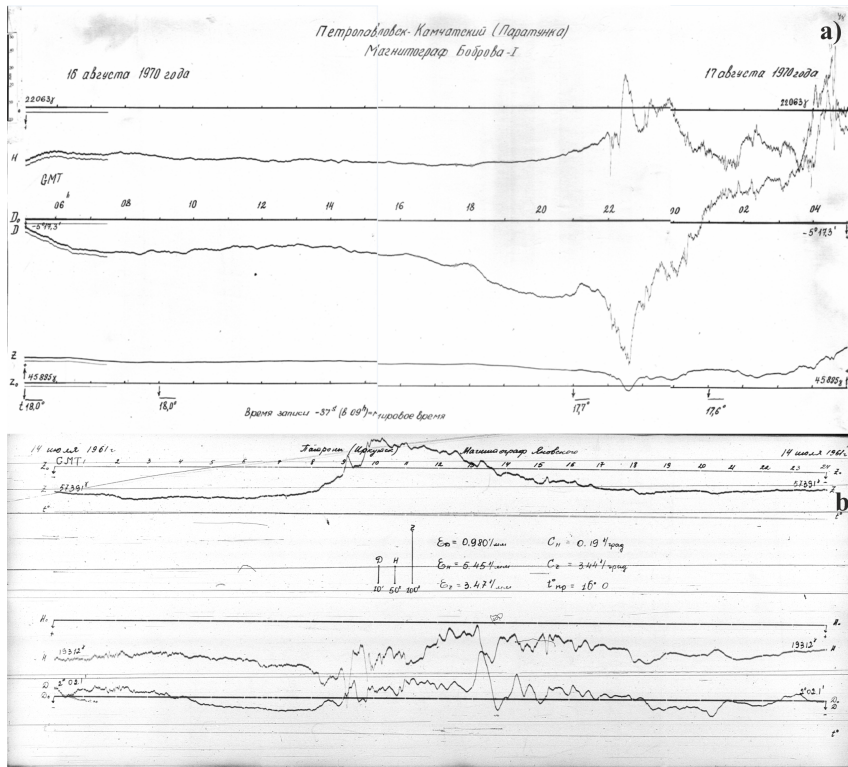 a)
Петропавловск-Камчатский (Паратунка)
Магнитограф Боброва-I
16 августа 1970 года
17 августа 1970 года
22063γ
22063γ
H
GMT
06ʰ 08 10 12 14 16 18 20 22 00 02 04
D₀
D
-5°17,3'
-5°17,3'
Z
Z₀
45895γ
45895γ
t 18,0°
18,0°
17,7°
17,6°
Время записи -37ˢ (в 09ʰ)-мировое время
14 июля 1961г
Патроны (Иркутск)
Магнитограф Яновского
14 июля 1961г
GMT 1 2 3 4 5 6 7 8 9 10 11 12 13 14 15 16 17 18 19 20 21 22 23 24
Z₀
Z₀
Z
57391γ
57391γ
Z
t°
t°
b
D H Z
10' 50γ 100γ
ℰD = 0.980'/мм
Cн = 0.19γ/град
ℰн = 5.45γ/мм
Cz = 3.44γ/град
ℰz = 3.47γ/мм
t°пр = 16°0
H₀
H₀
19312γ
19312γ
H
H
D
D₀
2°02.1'
2°02.1'
D₀
D
t°